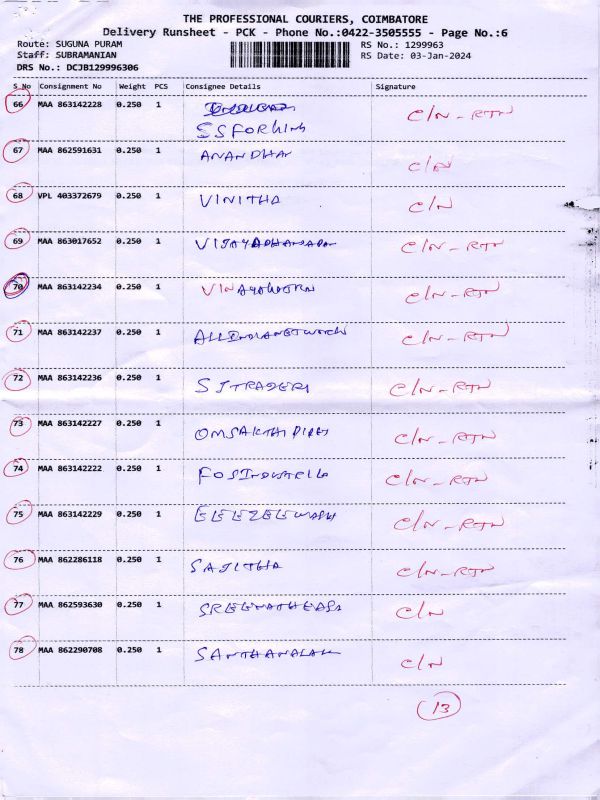 THE PROFESSIONAL COURIERS, COIMBATORE
Delivery Runsheet - PCK - Phone No.:0422-3505555 - Page No.:6
Route: SUGUNA PURAM RS No.: 1299963
Staff: SUBRAMANIAN RS Date: 03-Jan-2024
DRS No.: DCJB129996306
S No Consignment No Weight PCS Consignee Details Signature
66 MAA 863142228 0.250 1 C/N-RTN
SSFORKING
67 MAA 862591631 0.250 1 ANANDHAN C/N
68 VPL 403372679 0.250 1 VINITHA C/N
69 MAA 863017652 0.250 1 C/N-RTN
70 MAA 863142234 0.250 1 C/N-RTN
71 MAA 863142237 0.250 1 ALLINDIANETWORK C/N-RTN
72 MAA 863142236 0.250 1 SJTRADERS C/N-RTN
73 MAA 863142227 0.250 1 OMSAKTHI PIPES C/N-RTN
74 MAA 863142222 0.250 1 C/N-RTN
75 MAA 863142229 0.250 1 C/N-RTN
76 MAA 862286118 0.250 1 SAJITHA C/N-RTN
77 MAA 862593630 0.250 1 C/N
78 MAA 862290708 0.250 1 C/N
13